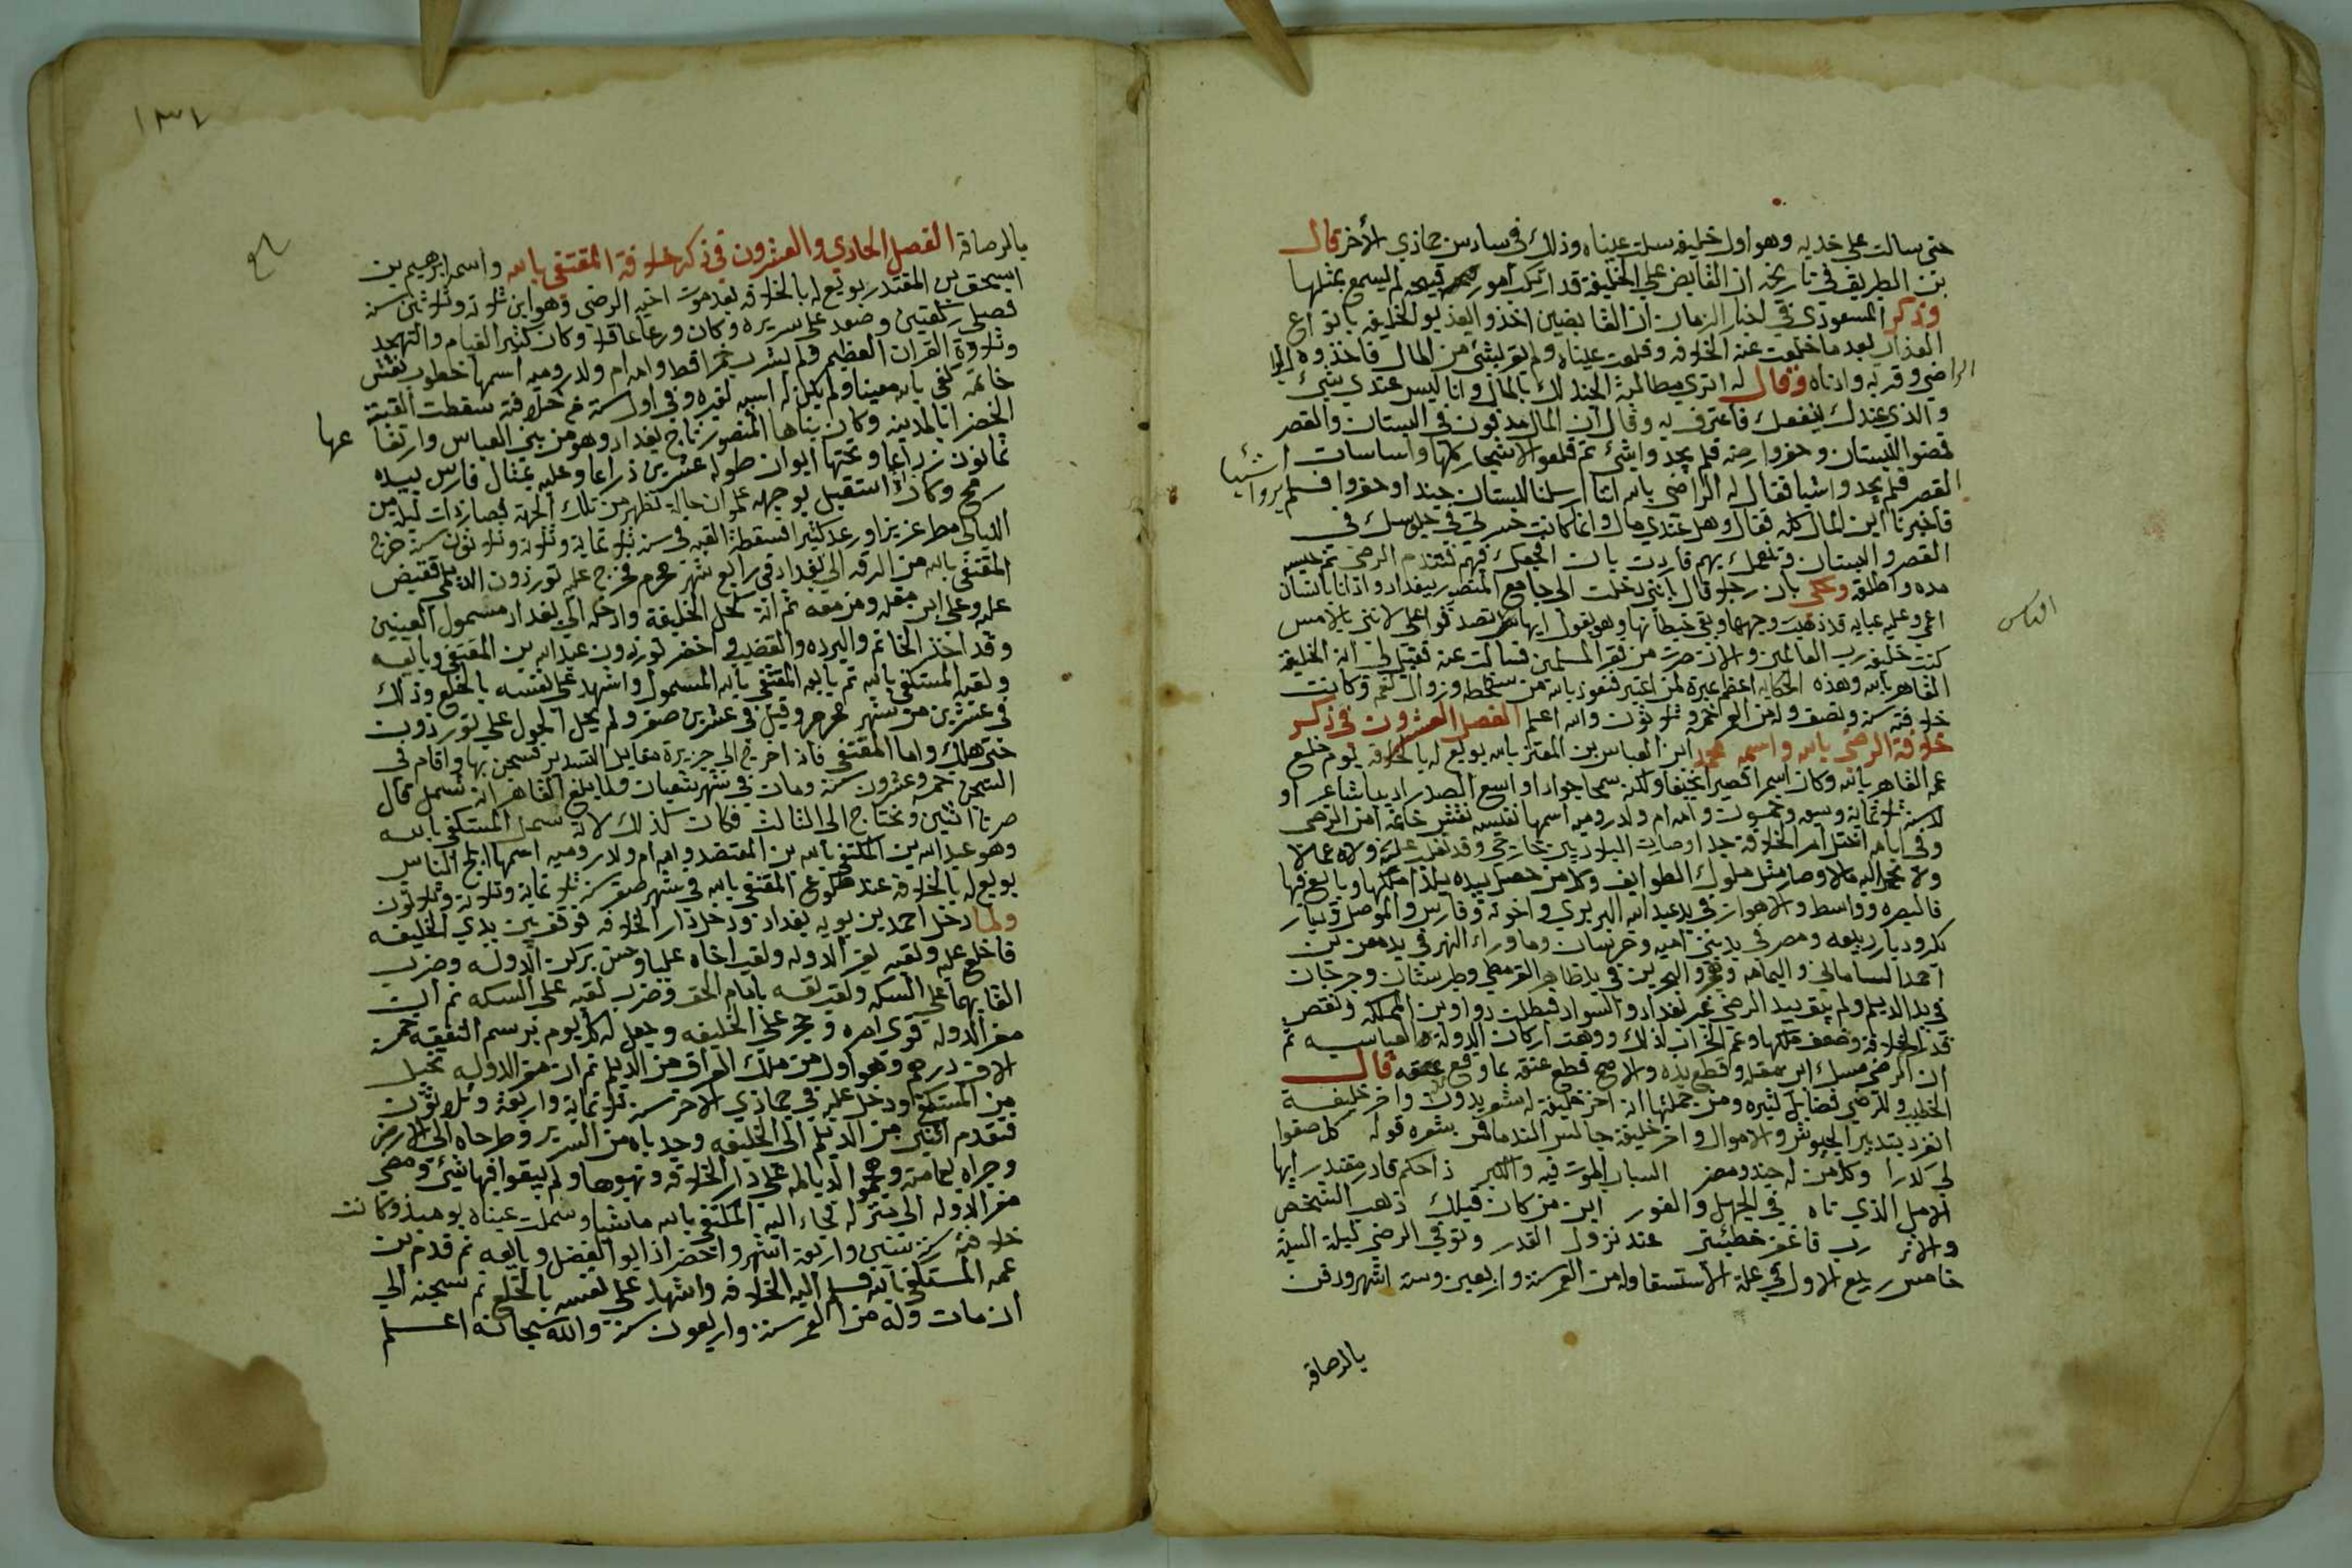 حتى سالت على خديه وهو اول خليفه سملت عيناه وذلك فى سادس جماذي الأخر قال
بن البطريق فى تاريخه ان القابض على الخليفة قد ارتكب امور قبيحه لم يسمع بمثلها
وذكر المسعودي فى اخبار الزمان ان القابضين اخذوا يعذبوا الخليفه بانواع
العذاب بعد ما خلعت عنه الخلافه وقلعت عيناه ولم يقر بشئ من المال فاخذوه الى
الراضي وقربه وادناه وقال له اترى مطالبة الجند لك بالمال وانا ليس عندي شئ
والذي عندك ينفعك فاعترف به وقال ان المال مدفون فى البستان والقصر
فمضوا للبستان وحفروا ارضه فلم يجدوا شئ ثم قلعوا الاشجار كلها واساسات
القصر فلم يجدوا شيا فقال له الراضي بالله اننا ارسلنا للبستان جيدا وحفروا فلم يروا شيا
فاخبرنا اين المال كله فقال وهل عندي مال وانما كانت حسرتى فى جلوسك فى
القصر والبستان وتنعمك بهم فاردت بان افجعك فيهم فتندم الرضي ثم حبسه
مده واطلقه وحكى بان رجلا قال باننى دخلت الى جامع المنصور ببغداد واذ انا بانسان
اعمى وعليه عبايه قد ذهبت وجهها وبقى خيطانها وهو يقول ايها الناس تصدقوا على لاننى بالامس
كنت خليفه رب العالمين والان صرت من فقرا المسلمين فسالت عنه فقيل لى انه الخليفه
القاهر بالله وهذه الحكايه اعظم عبرة لمن اعتبر فنعوذ بالله من سخطه وزوال نعمه وكانت
خلافته سنه ونصف وله من العمر خمس وثلاثون والله اعلم الفصل العشرون فى ذكر
خلافة الرضي بالله واسمه محمد ابو العباس بن المقتدر بالله بويع له بالخلافه يوم خلع
عمه القاهر بالله وكان اسمر قصيرا نحيفا ولكنه سمحا جوادا واسع الصدر اديبا شاعرا و
لد سنة ثلاثمائة وسبعه وخمسون وامه ام ولد روميه اسمها نفيسه نقش خاتمه امن الرضي
وفى ايامه اختل امر الخلافة جدا وصارت البلاد بين خارجى وقد تغلب عليه ولاه عمالا
ولا يحمل اليه مالا وصار مثل ملوك الطوايف وكل من حصل بيده بلدا ملكها وبايع فيها
فالبصره وواسط والاهواز فى يد عبد الله البريري واخوته وفارس والموصل وديار
بكر وديار ربيعه ومصر فى يد بني اميه وخرسان وما وراء النهر فى يد معن بن
احمد السامانى واليمامه وهجر والبحرين فى يد ظاهر القرمطي وطبرستان وجرجان
فى يد الديلم ولم يبق بيد الرضي غير بغداد والسواد فبطلت دواوين المملكه ونقص
قدر الخلافه وضعف ملكها وعم الخراب لذلك ووهت اركان الدولة العباسيه ثم
ان الرضي مسك ابن مقله وقطع يده والاصح قطع عنقه بما وقع بحقه قال
الخطيب وللرضي فضايل كثيره ومن جملتها انه اخر خليفه له شعر يدون واخر خليفة
انفرد بتدبير الجيوش والاموال واخر خليفة جالس الندما فمن شعره قوله كل صفوا
لى كدرا وكل من له جند ومصر السباب الموت فيه والكبر ذا حكم قادر مقتدر ايها
الامل الذي تاه في الجهل والغرور اين من كان قبلك ذهب الشخص
والاثر رب فاغفر خطيئتى عند نزول القدر وتوفى الرضي ليلة السبت
خامس ربيع الاول فى علة الاستسقا وله من العمر سنة واربعين وسته اشهر ودفن
بالرصافه
الناس
١٣١
بلغ
بالرصافه الفصل الحادي والعشرون فى ذكر خلافة المقتفي بالله واسمه ابرهيم بن
اسحق بن المقتدر بويع له بالخلافه بعد موت اخيه الرضي وهو ابن ثلاثه وثلاثين سنه
فصلى ركعتين وصعد على سريره وكان ورعا عاقلا وكان كثير القيام والتهجد
وتلاوة القران العظيم ولم يشرب خمرا قط وامه ام ولد روميه اسمها خطوب نقش
خاتمه كفى بالله معينا ولم يكن له اسيه لغيره وفى اول سنة من خلافته سقطت القبة
الخضرا بالمدينه وكان بناها المنصور تاج بغداد وهو من بنى العباس وارتفاعها
ثمانون ذراعا وتحتها ايوان طوله عشرين ذراعا وعليه تمثال فارس بيده
رمح وكان اذا استقبل بوجهه علموا ان خارجا يظهر من تلك الجهة فصار ذات ليله من
الليالى مطر غزيز ورعد كثير فسقطة القبه فى سنه ثلاثمايه وثلاثه وثلاثون سنه خرج
المقتفي بالله من الرقه الى بغداد فى رابع شهر محرم فخرج عليه تورزون الديلمى فقبض
عليه وعلى ابن مقله ومن معه ثم انه كحل الخليفة وادخله الى بغداد مسمول العينين
وقد اخذ الخاتم والبرده والقضيب واحضر تورزون عبد الله بن المقتفي وبايعه
ولقبه المستكفي بالله ثم بايعه المقتفي بالله المسمول واشهد على نفسه بالخلع وذلك
فى عشرين من شهر محرم وقيل فى عشرين صفر ولم يحل الحول على تورزون
حتى هلك واما المقتفي فانه اخرج الى جزيرة مقابل السندير فسجن بها واقام فى
السجن خمسه وعشرون سنه ومات فى شهر شعبان ولما بلغ القاهر انه سمل قال
صرنا اثنين ونحتاج الى الثالث فكان كذلك لانه سمل المستكفي بالله
وهو عبد الله بن المكتفي بالله بن المعتضد وامه ام ولد روميه اسمها ابلج الناس
بويع له بالخلافه عند خلوع المقتفي بالله فى شهر صفر سنه ثلاثمائة وثلاثه وثلاثون
ولما دخل احمد بن بويه بغداد ودخل دار الخلافه فوقف بين يدي الخليفه
فاخلع عليه ولقبه بعز الدوله ولقب اخاه عليا وحسن بركن الدوله وضرب
القابهما على السكه ولقب نفسه بامام الحق وضرب لقبه على السكه ثم ان
معز الدوله قوى امره وحجر على الخليفه وجعل له كل يوم برسم النفقه خمسة
الاف درهم وهو اول من ملك العراق من الديلم ثم ان معز الدوله تخيل
من المستكفي ودخل عليه فى جماذي الاخر سنه ثلاثمائة واربعة وثلاثون
فتقدم اثنين من الديلم الى الخليفه وجدباه من السرير وطرحاه الى الارض
وجراه بعمامته وهجموا الديالمه على دار الخلافه ونهبوها ولم يبقوا فيها شئ ومضى
معز الدوله الى منزله فجاء اليه المكتفي بالله ماشيا وسملت عيناه يوميذ وكانت
خلافته سنتين واربعة اشهر واحضر اذ ابو الفضل وبايعه ثم قدم بن
عمه المستكفي بالله فسلم اليه الخلافه واشهد على نفسه بالخلع ثم سجنه الى
ان مات وله من العمر سته واربعون سنه والله سبحانه اعلم